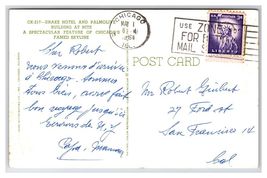 CK-317—DRAKE HOTEL AND PALMOLIVE
BUILDING AT NITE
A SPECTACULAR FEATURE OF CHICAGO'S
FAMED SKYLINE
CHICAGO
MAR
1964
ILL
USE ZONE
FOR
MAIL
POST CARD
Sir Robert
Nous venons d'arriver
à Chicago. Sommes
tous bien, avons fait
bon voyage jusqu'ici
Papa, Maman
Mr Robert Guibert
27 Ford st
San Francisco 14
Cal